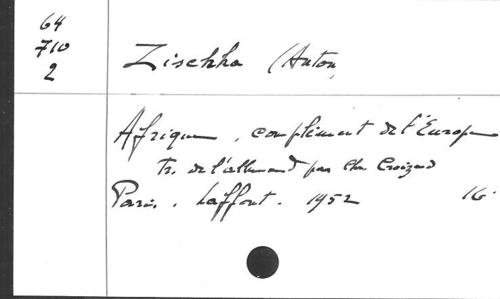 64
710
2
Zischka (Anton
Afrique, complément de l'Europe
Tr. de l'allemand par Ch. Croizard
Paris. Laffont. 1952 16°